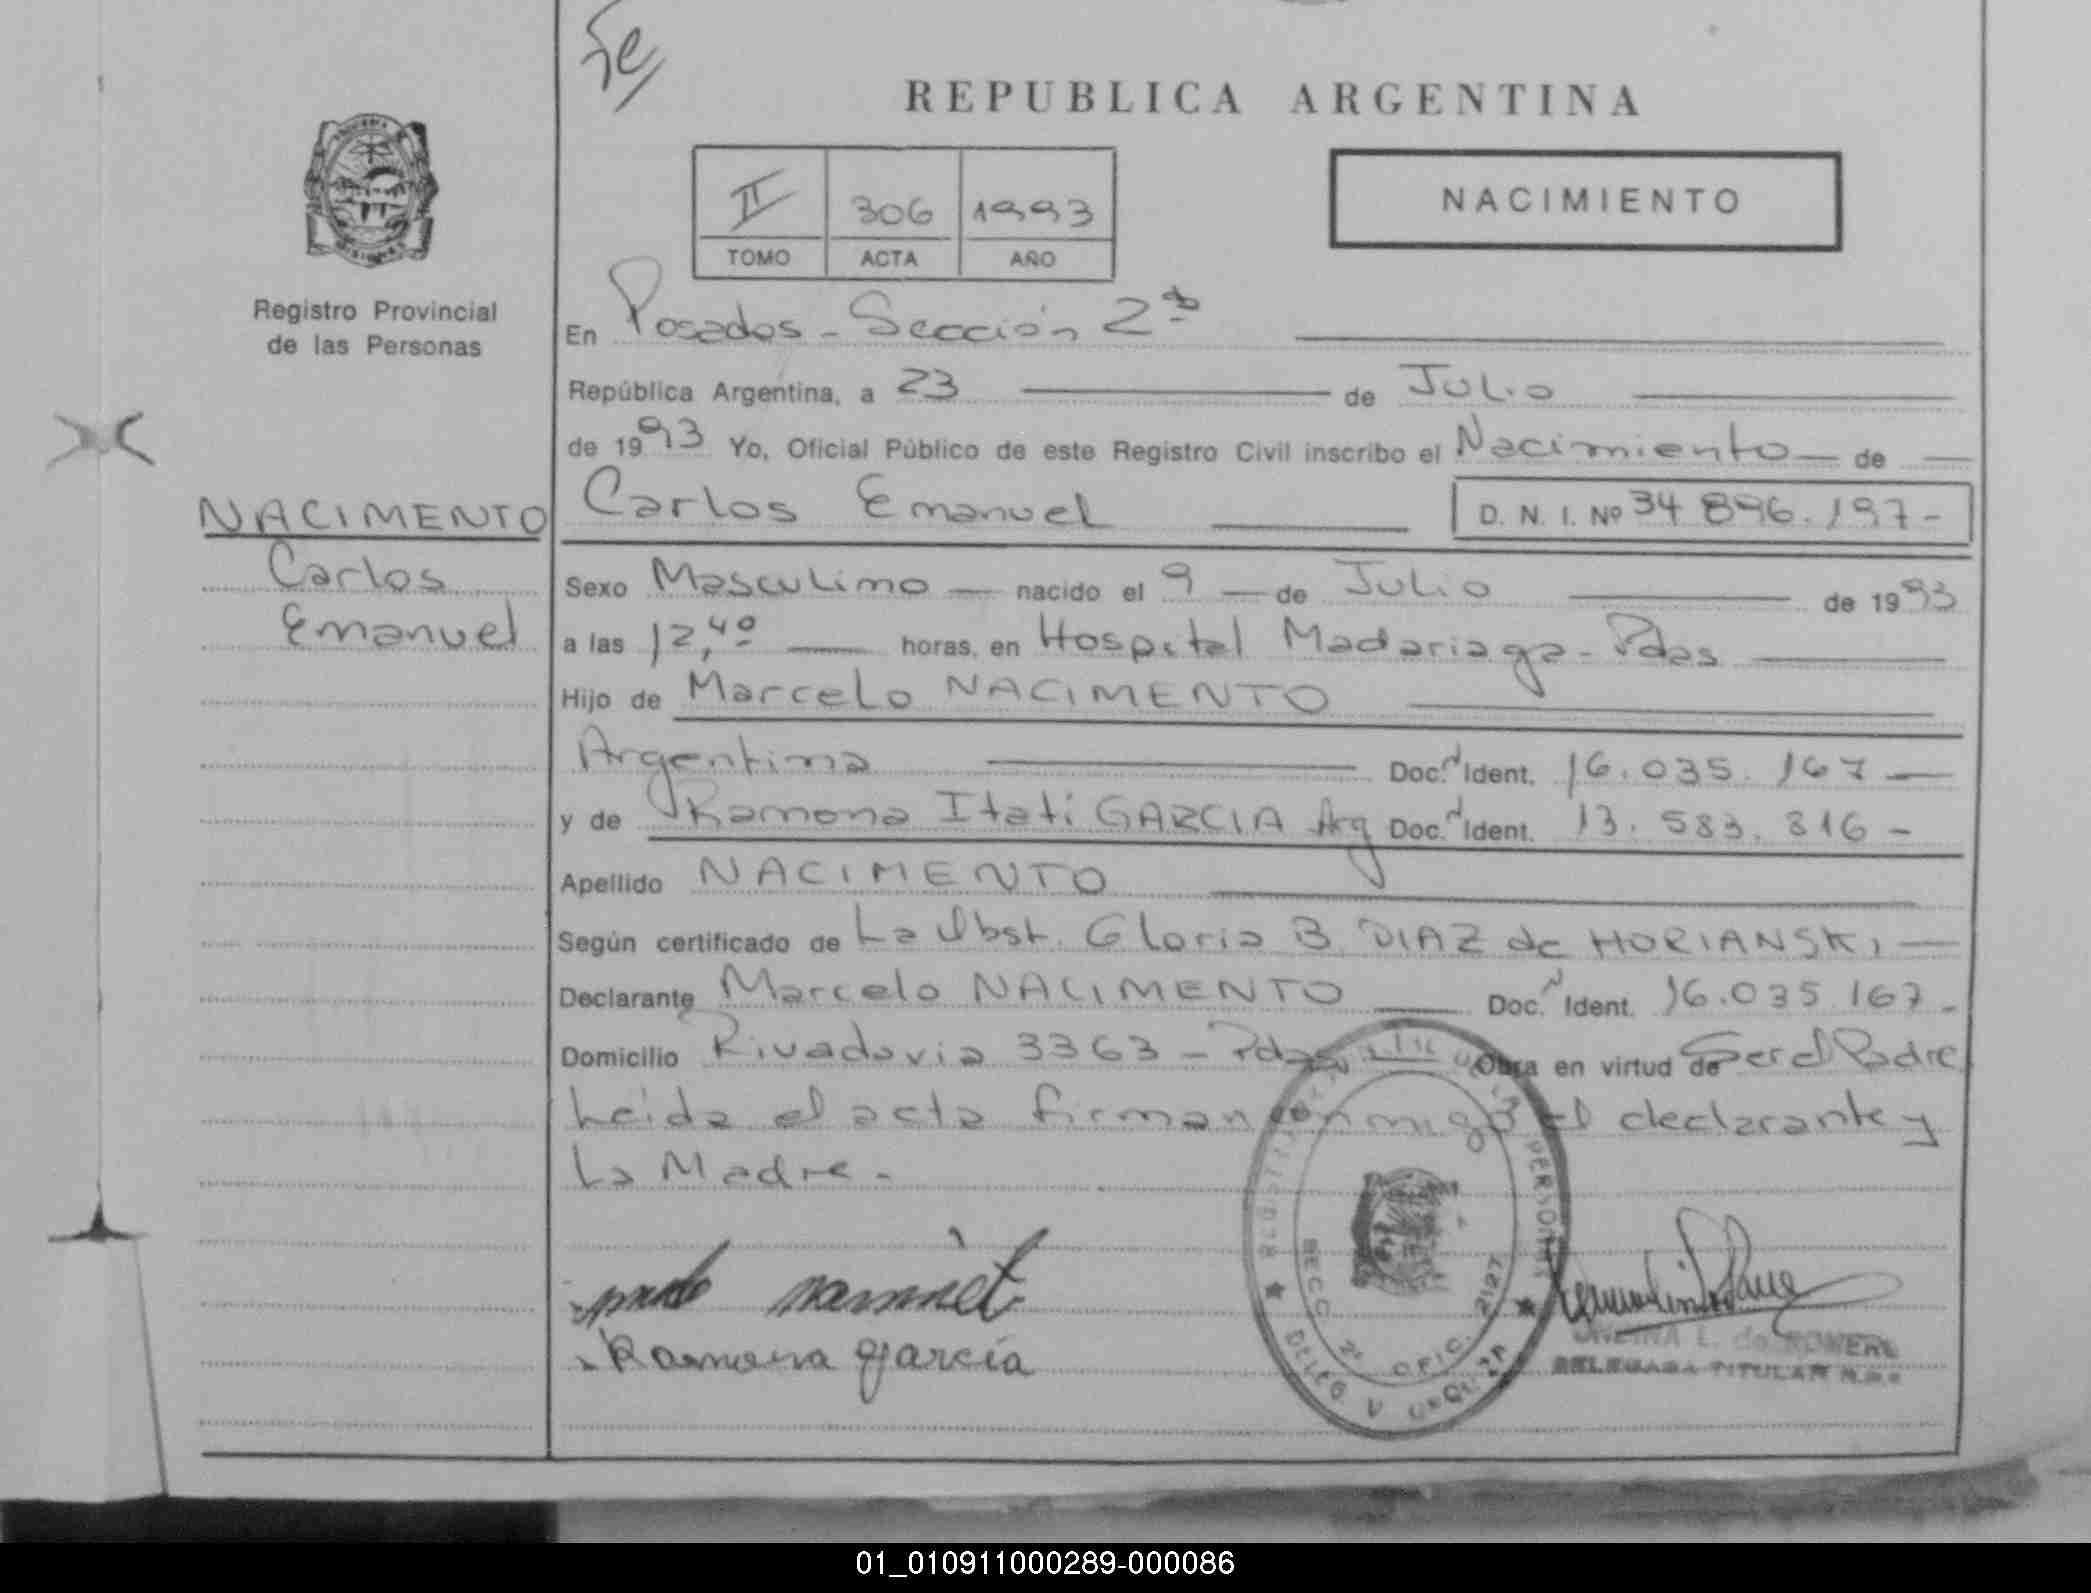 REPUBLICA ARGENTINA
II 306 1993
TOMO ACTA AÑO
NACIMIENTO
Registro Provincial
de las Personas
En Posadas - Sección 2ª
República Argentina, a 23 de Julio
de 1993 Yo, Oficial Público de este Registro Civil inscribo el Nacimiento de
Carlos Emanuel D. N. I. Nº 34 896.197-
NACIMENTO
Carlos
Emanuel
Sexo Masculino nacido el 9 de Julio de 1993
a las 12,40 horas, en Hospital Madariaga - Pdas
Hijo de Marcelo NACIMENTO
Argentina Doc. Ident. 16.035.167
y de Ramona Itati GARCIA Arg Doc. Ident. 13.583.816 -
Apellido NACIMENTO
Según certificado de La Obst. Gloria B. DIAZ de HORIANSKI
Declarante Marcelo NACIMENTO Doc. Ident. 16.035 167-
Domicilio Rivadavia 3363 - Pdas Obra en virtud de Ser el Padre
Leida el acta firman conmigo el declarante y
La Madre -
Ramona garcía
PERSONAS
SECC. 2ª OFIC. 2127
DELEG.
DELEGADA TITULAR
01_010911000289-000086